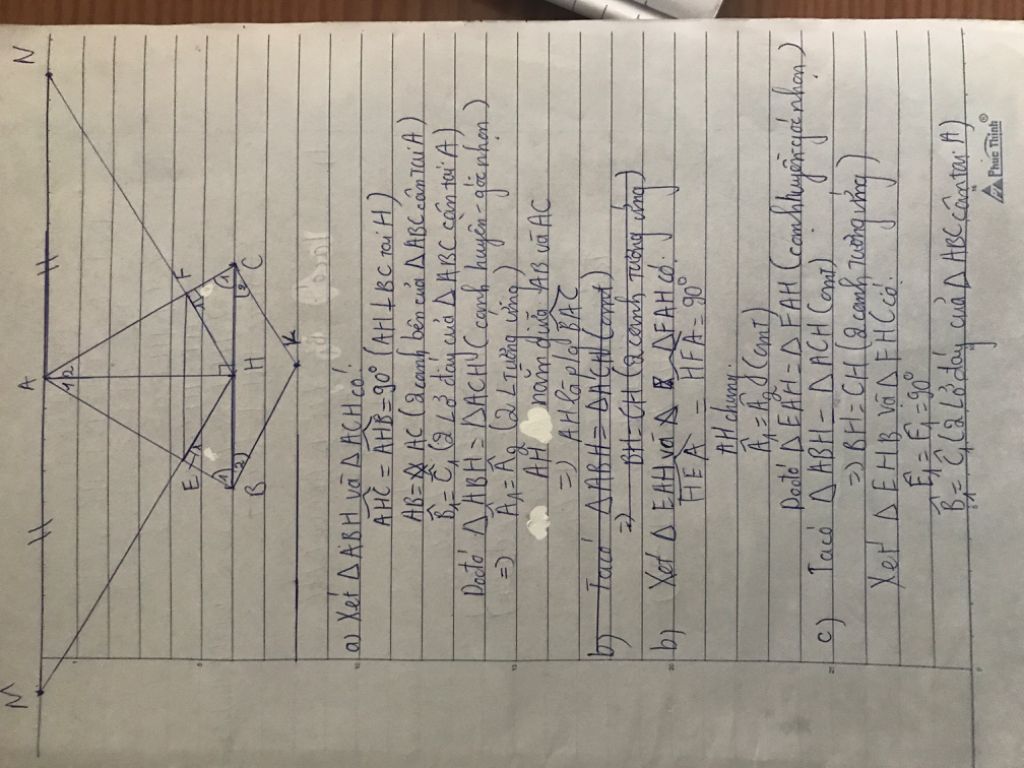 M A N
E F
1 2
B H C
K
a) Xét Δ ABH và Δ ACH có:
AHC = AHB = 90° (AH ⊥ BC tại H)
AB = AC (2 cạnh bên của Δ ABC cân tại A)
B̂₁ = Ĉ₁ (2 ∠ ở đáy của Δ ABC cân tại A)
Do đó Δ ABH = Δ ACH (cạnh huyền - góc nhọn)
=) Â₁ = Â₂ (2 ∠ tương ứng)
AH nằm giữa AB và AC
=) AH là p/g BAC
b) Ta có Δ ABH = Δ ACH (cmt)
=) BH = CH (2 cạnh tương ứng)
b) Xét Δ EAH và Δ FAH có:
HEA = HFA = 90°
AH chung.
Â₁ = Â₂ (cmt)
Do đó Δ EAH = Δ FAH (cạnh huyền góc nhọn)
c) Ta có Δ ABH = Δ ACH (cmt)
=) BH = CH (2 cạnh tương ứng)
Xét Δ EHB và Δ FHC có:
Ê₁ = F̂₁ = 90°
B̂₁ = Ĉ₁ (2 ∠ ở đáy của Δ ABC cân tại A)
Phúc Thịnh ®